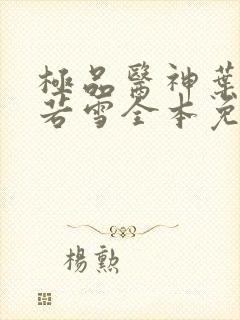 極品醫神葉
若雪全本免
楊勲